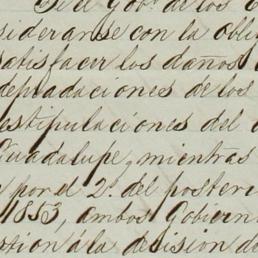 Si el Gob.º de los E
siderarse con la obli
satisfacer los daños
depredaciones de los
estipulaciones del
Guadalupe, mientras
por el 2.º del posteri
1853, ambos Gobiern
stion á la decision de